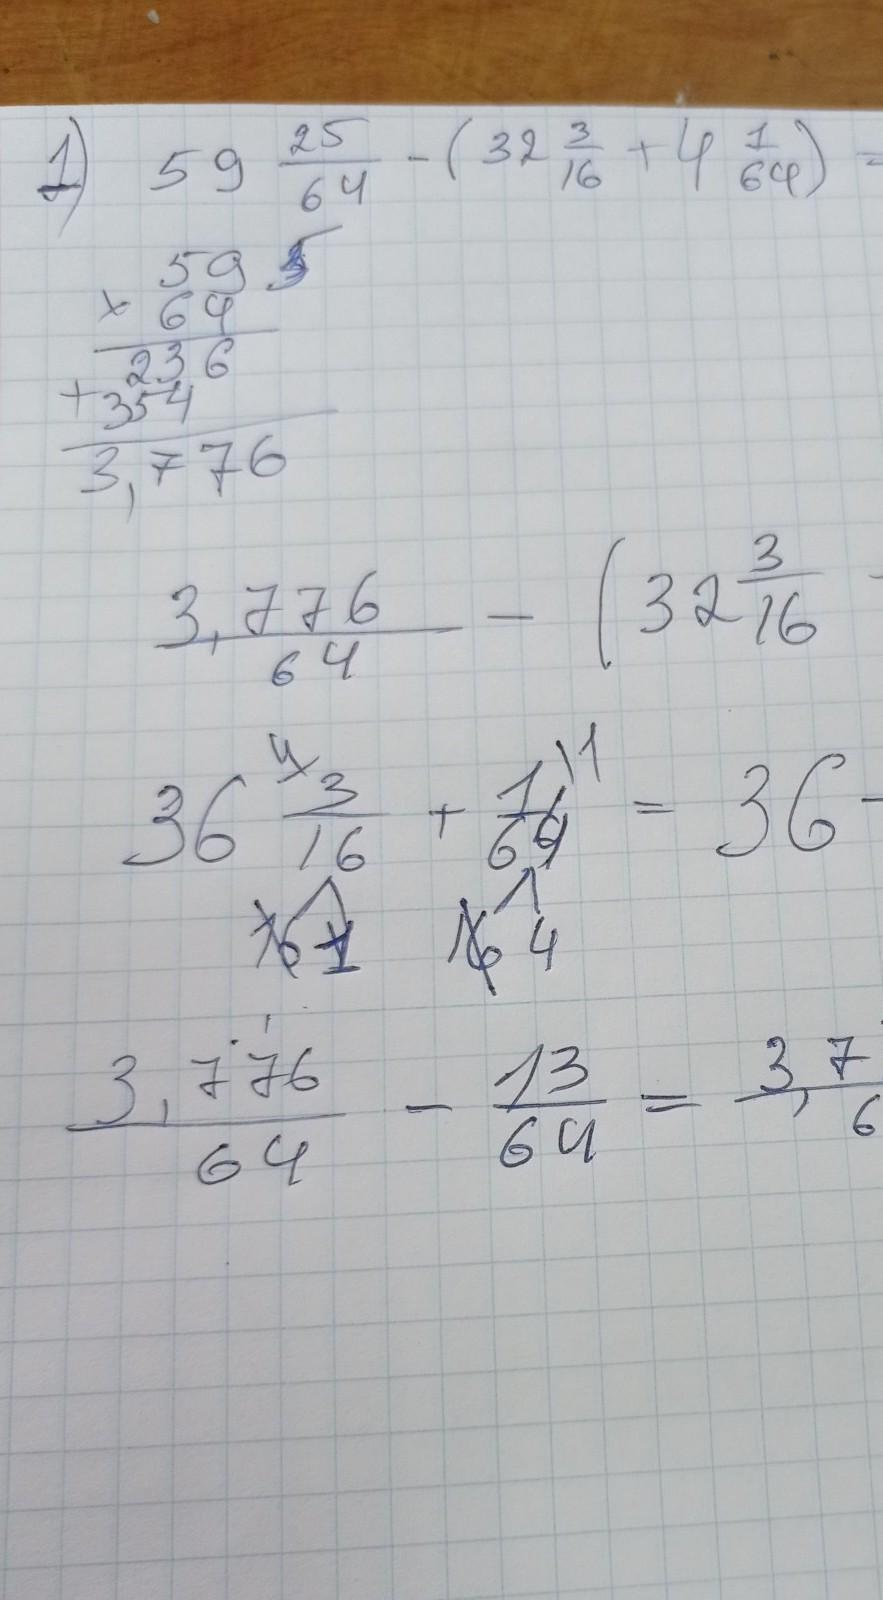 1) 59 25/64 - (32 3/16 + 4 1/64) =
59
× 64
236
+ 354
3,776
3,776/64 - (32 3/16
36 3/16 + 1/64 = 36
16 1 16 4
3,776/64 - 13/64 = 3,7